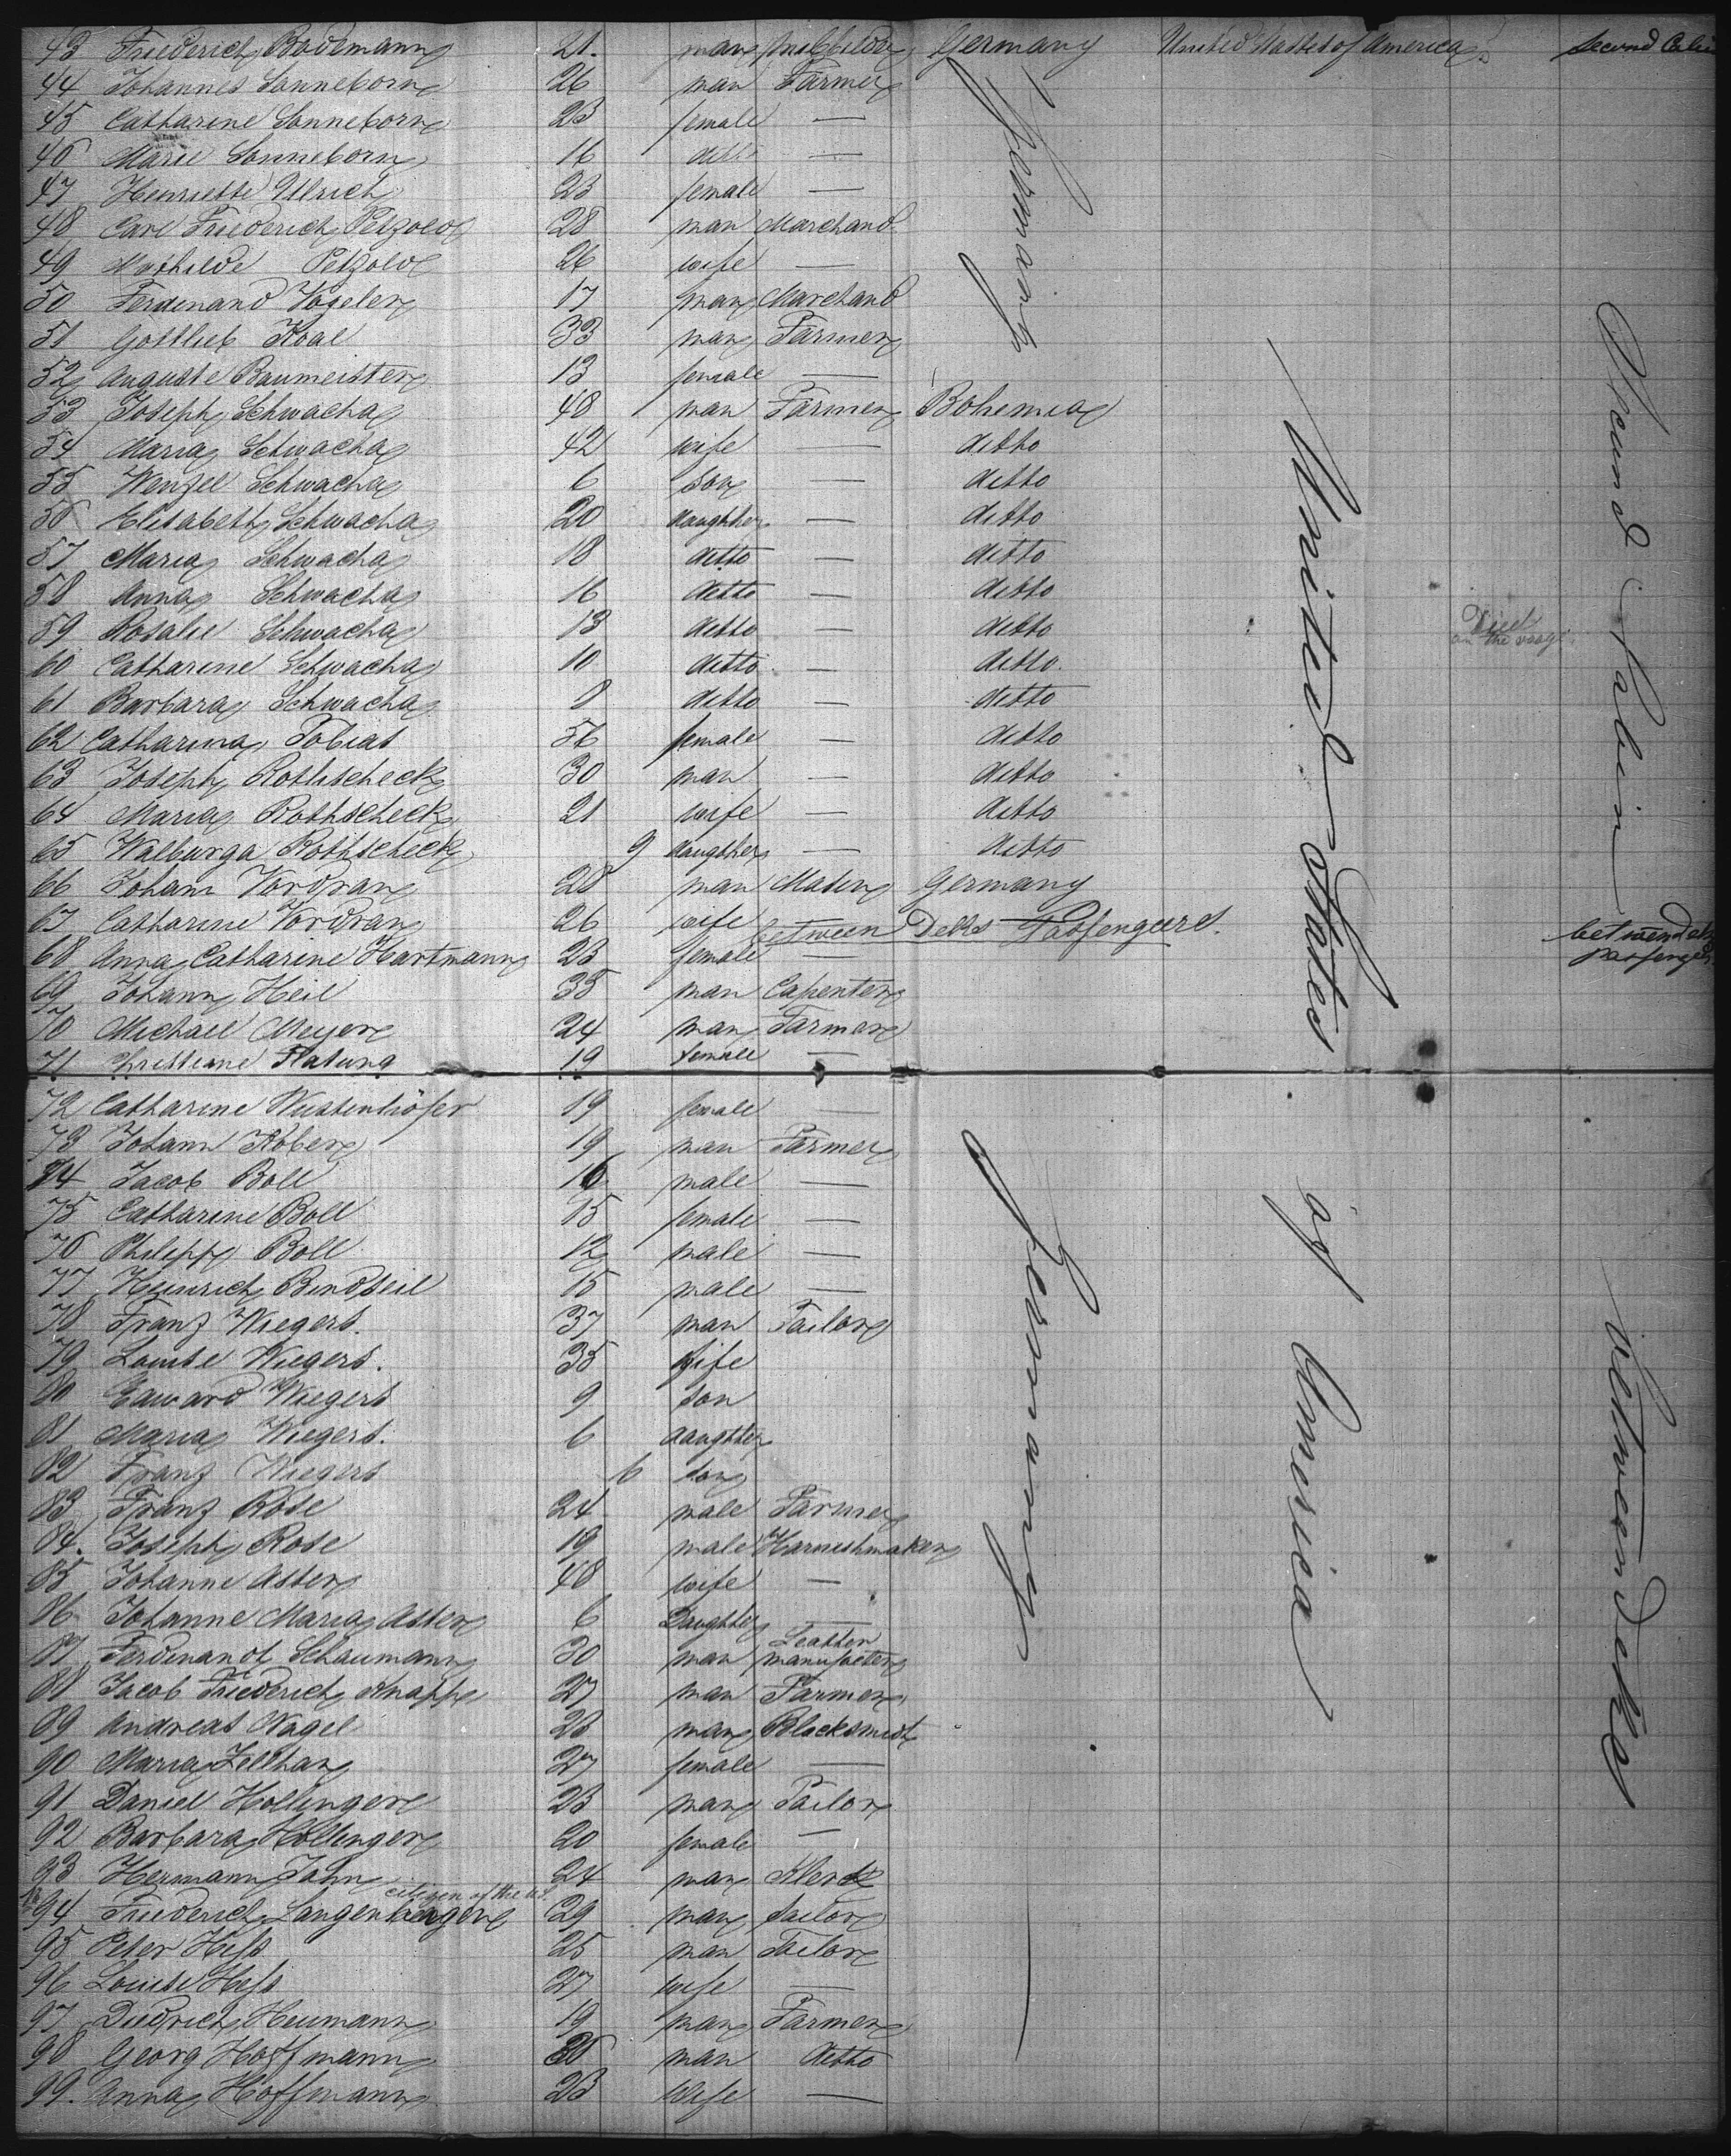 43 Friederich Bodemann 21. man Germany United States of America second Cabin
44 Johannes Sonneborn 26 man Farmer
45 Catharine Sonneborn 23 female —
46 Marie Sonneborn 16 ditto —
47 Henriette Ullrich 23 female —
48 Carl Friederich Petzold 28 man Marchand
49 Mathilde Petzold 26 wife —
50 Ferdinand Vogeler 17 man Marchand
51 Gottlieb Kaal 33 man Farmer
52 Auguste Baumeister 13 female —
Germany
53 Joseph Schwacha 48 man Farmer Bohemia
54 Maria Schwacha 42 wife — ditto
55 Wenzel Schwacha 6 son — ditto
56 Elisabeth Schwacha 20 daughter — ditto
57 Maria Schwacha 18 ditto — ditto
58 Anna Schwacha 16 ditto — ditto
59 Rosalie Schwacha 13 ditto — ditto Died on the voage
60 Catharine Schwacha 10 ditto — ditto
61 Barbara Schwacha 8 ditto — ditto
62 Catharina Tobias 56 female — ditto
63 Joseph Rothscheck 30 man — ditto
64 Maria Rothscheck 21 wife — ditto
65 Walburga Rothscheck 9 daugther — ditto
Second Cabin
66 Johann Vordran 28 man Germany
67 Catharine Vordran 26 wife
between Deks Passengeers.
between deks passengers
68 Anna Catharine Hartmann 23 female —
69 Johann Heil 35 man Capenter
70 Michael Meyer 24 man Farmer
71 Christiane Flatung 19 female —
72 Catharine Wustenhöfer 19 female —
73 Johann Kober 19 man Farmer
74 Jacob Boll 16 male —
75 Catharine Boll 15 female —
76 Philipp Boll 12 male —
77 Heinrich Bindseil 15 male —
78 Franz Wiegers. 37 man Tailor
79 Louise Wiegers. 35 wife
80 Edward Wiegers 9 son
81 Maria Wiegers. 6 daugther
82 Franz Wiegers 6 son
83 Franz Rose 24 male Farmer
84. Joseph Rose 19 male Harneshmaker
85 Johanne Aster 48 wife —
86 Johanne Maria Aster 6 Daughter —
87 Ferdinandt Schaumann 30 man Leather manufacter
88 Jacob Friederich Knappe 27 man Farmer
89 Andreas Nagel 28 man Blacksmidt
90 Maria Zellhan 27 female —
91 Daniel Hollinger 23 man Tailor
92 Barbara Hollinger 20 female —
93 Hermann Jahn 24 man Klerck
citizen of the U.S.
94 Friederich Langenberger 29 man sailor
95 Peter Heß 25 man Tailor
96 Louise Heß 27 wife —
97 Diedrich Heumann 19 man Farmer
98 Georg Hoffmann 28 man ditto
99. Anna Hoffmann 23 Wife —
Germany
United States of America
between Deks